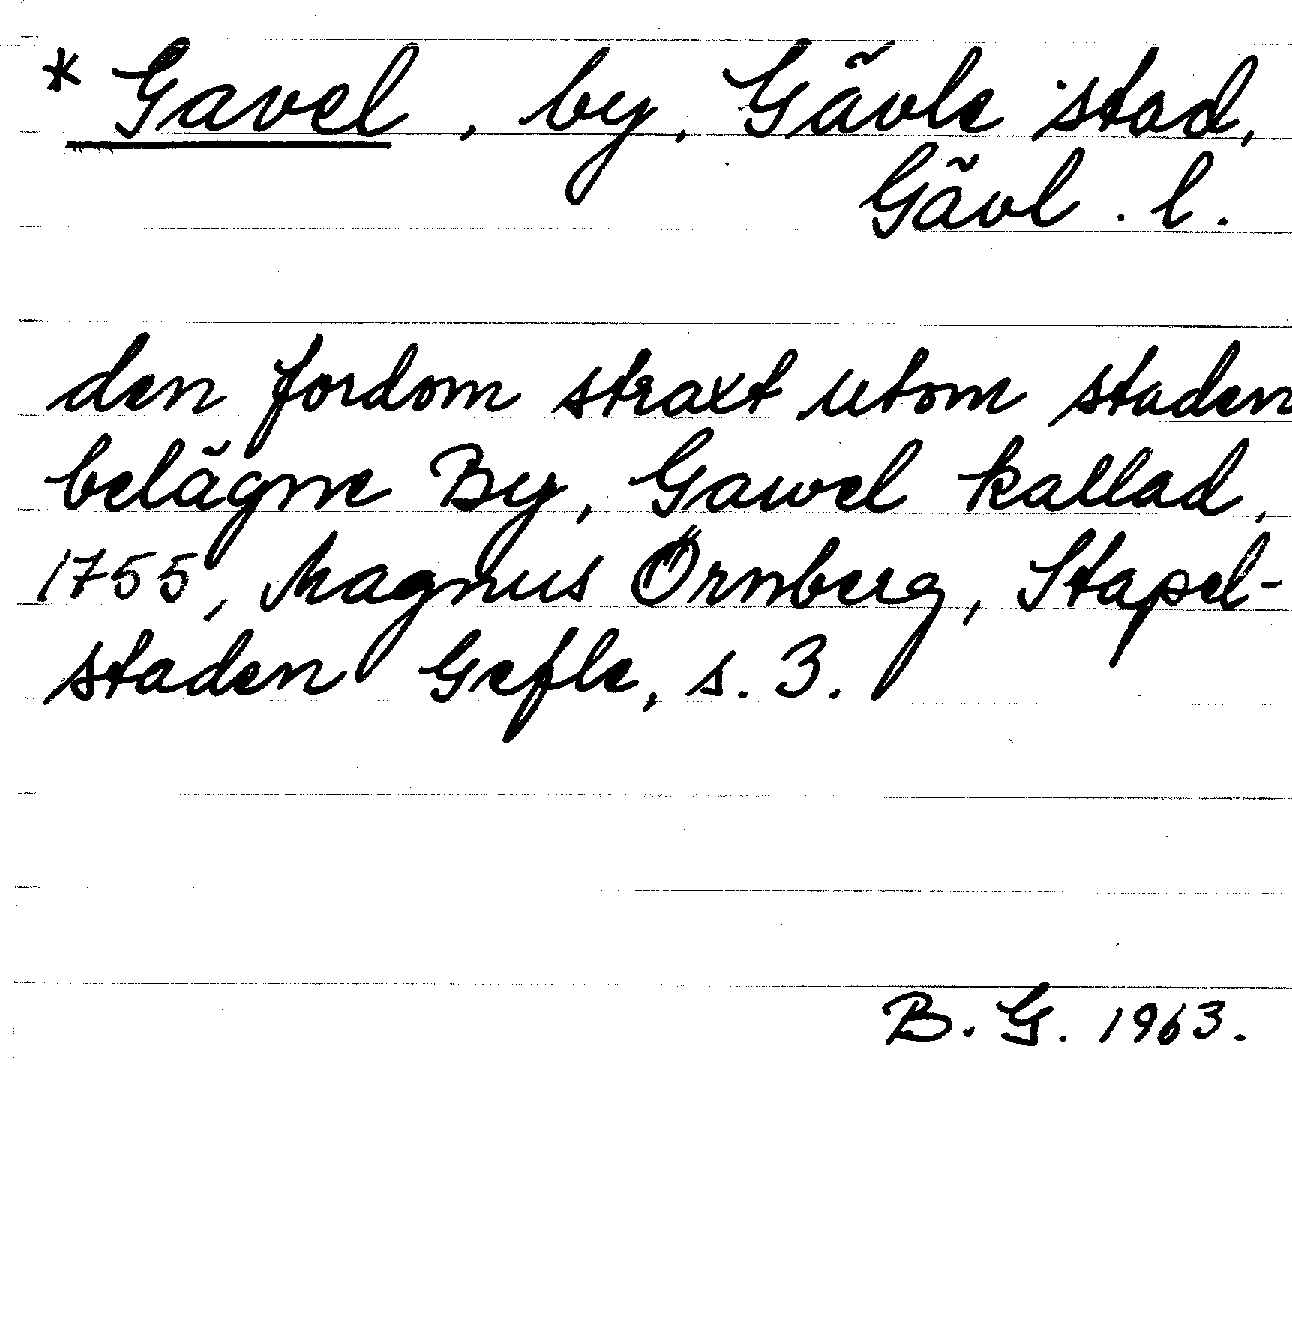 * Gavel, by, Gävle stad,
Gävl. l.
den fordom straxt utom staden
belägne By, Gawel kallad,
1755, Magnus Örnberg, Stapel-
staden Gefle, s. 3.
B. G. 1963.